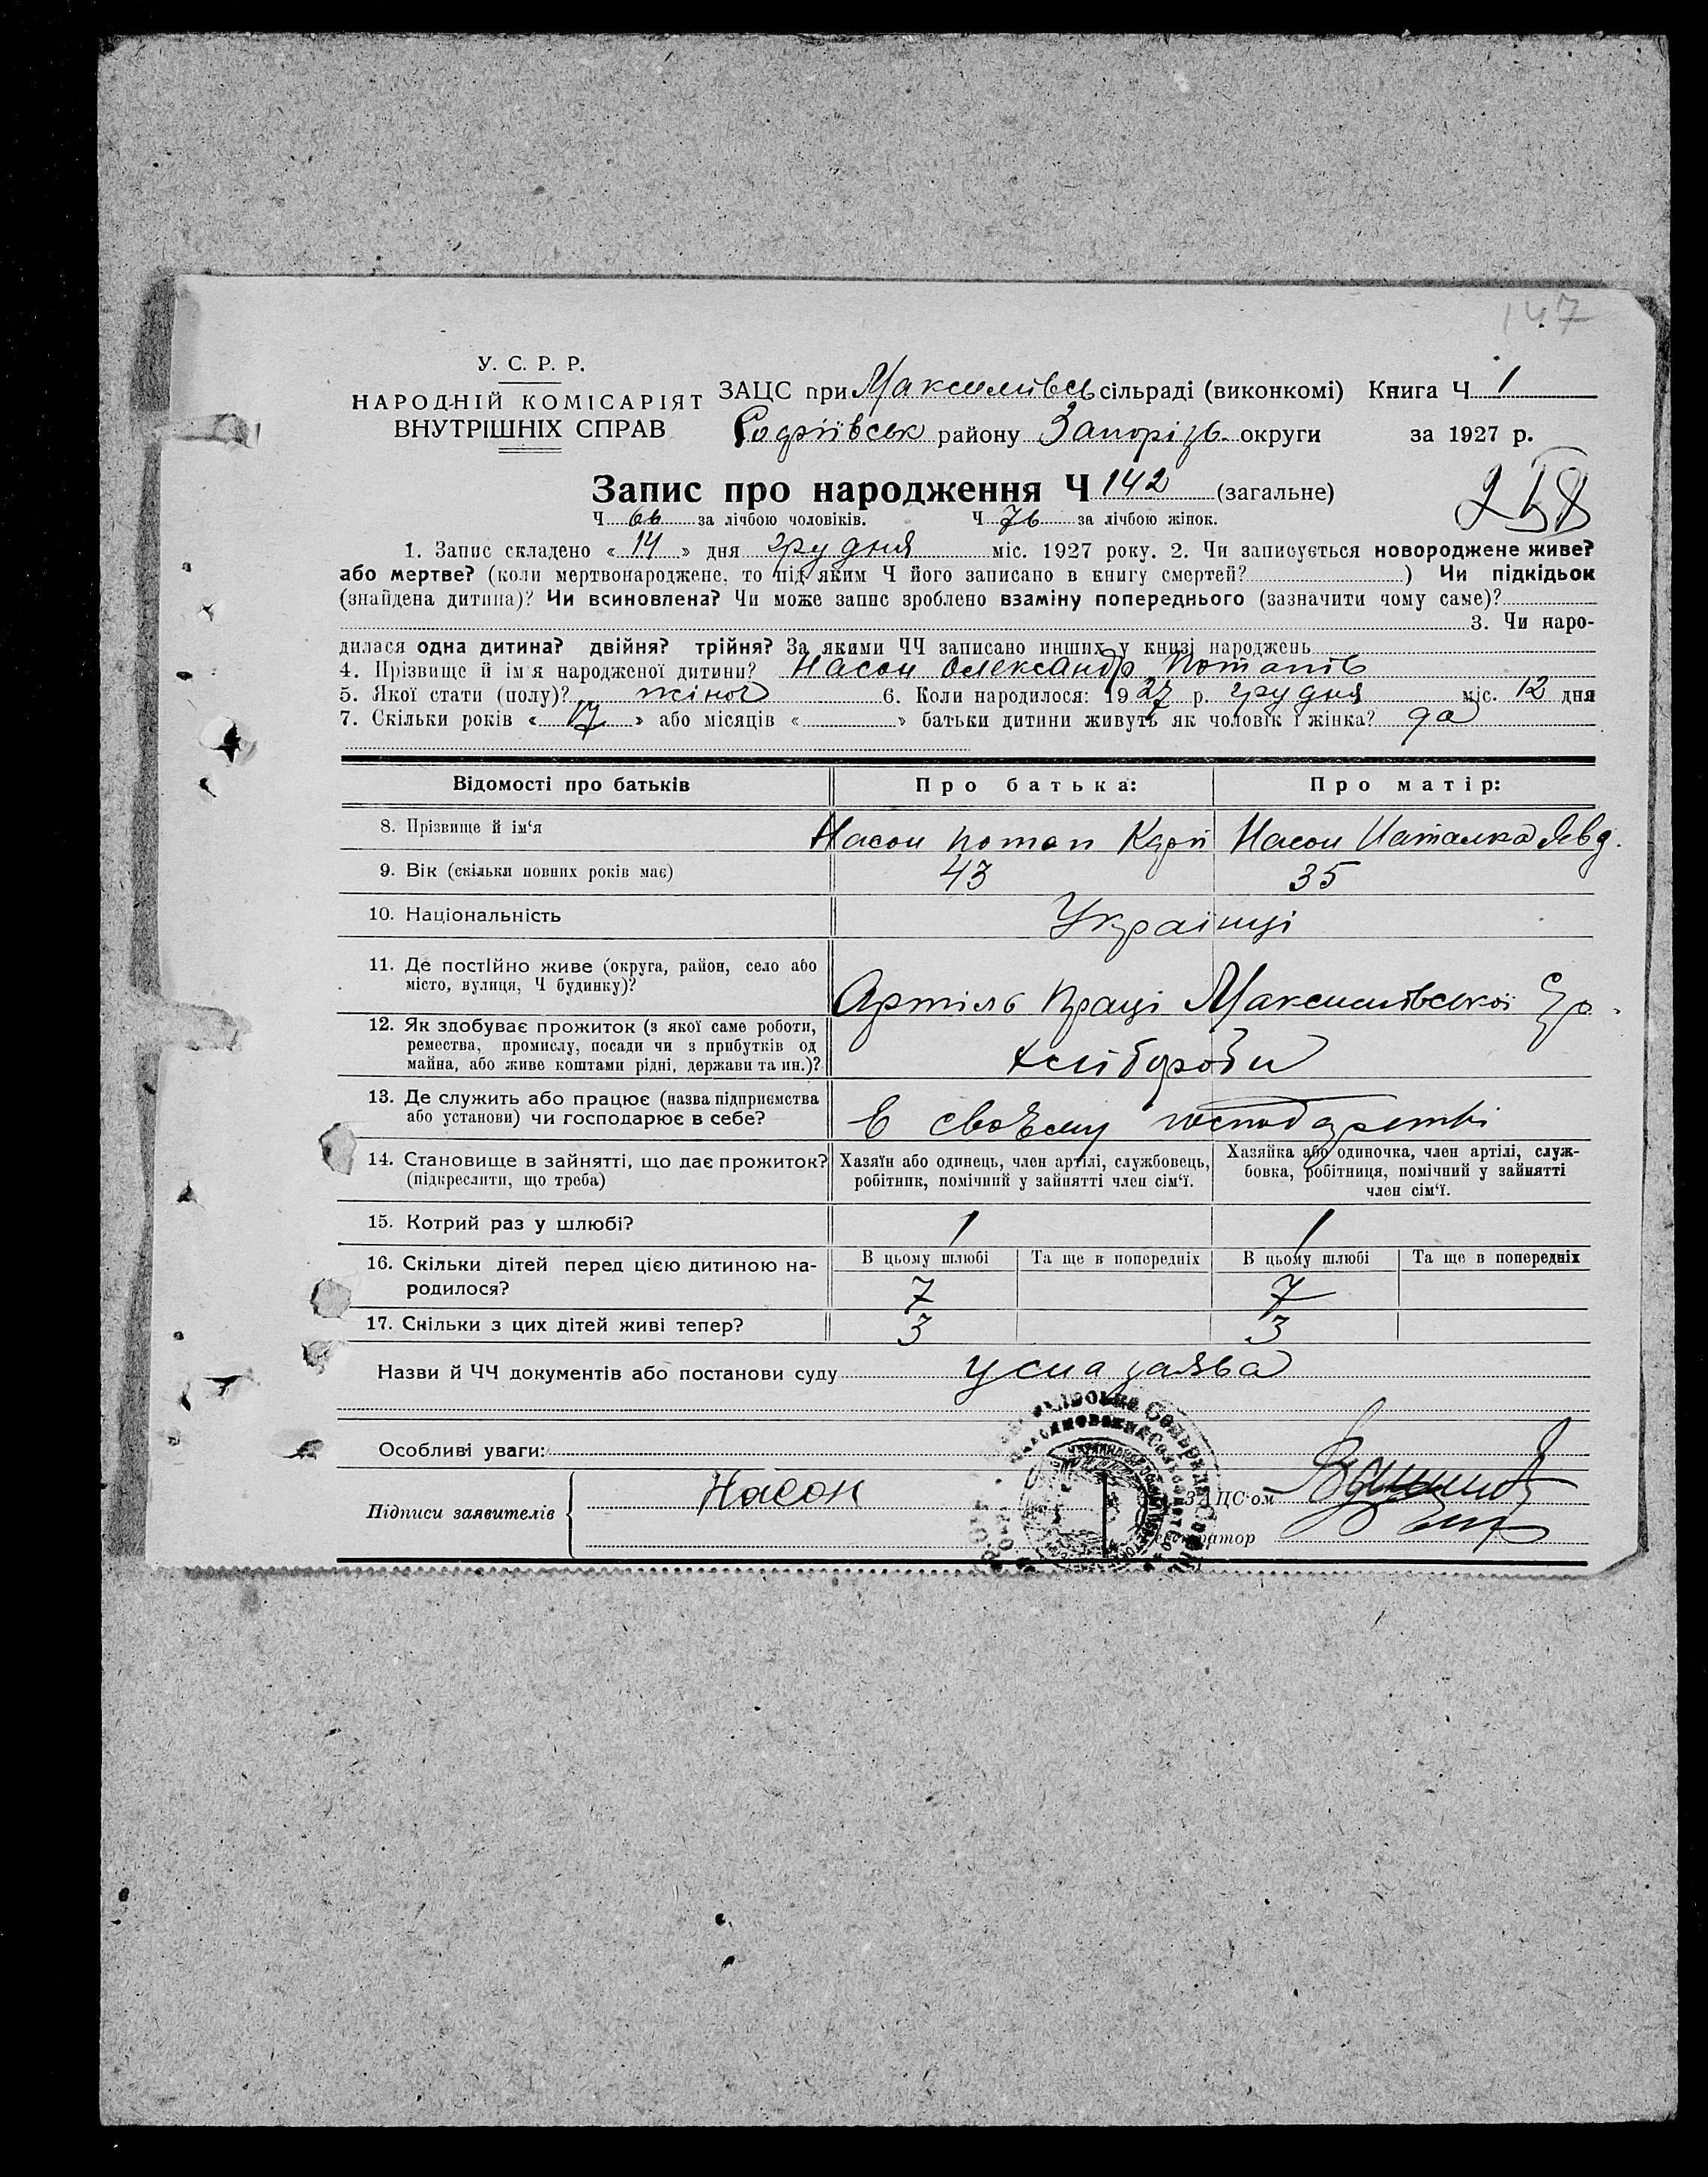 147
У. С. Р. Р.
НАРОДНІЙ КОМІСАРІЯТ
ВНУТРІШНІХ СПРАВ
ЗАЦС при Максимівсь сільраді (виконкомі) Книга Ч 1
Софіївськ району Запорізь. округи за 1927 р.
Запис про народження Ч 142 (загальне)
Ч 66 за лічбою чоловіків. Ч 76 за лічбою жінок.
1. Запис складено « 14 » дня грудня міс. 1927 року. 2. Чи записується новороджене живе?
або мертве? (коли мертвонароджене, то під яким Ч його записано в книгу смертей? ) Чи підкідьок
(знайдена дитина)? Чи всиновлена? Чи може запис зроблено взаміну попереднього (зазначити чому саме)?
3. Чи наро-
дилася одна дитина? двійня? трійня? За якими ЧЧ записано инших у книзі народжень
4. Прізвище й ім'я народженої дитини? Насон Олександр Потапів
5. Якої стати (полу)? жіноч 6. Коли народилося: 1927 р. грудня міс. 12 дня
7. Скільки років « 17 » або місяців « » батьки дитини живуть як чоловік і жінка? да
Відомості про батьків Про батька: Про матір:
8. Прізвище й ім'я Насон Потап Карп Насон Наталка Явд.
9. Вік (скільки повних років має) 43 35
10. Національність Українці
11. Де постійно живе (округа, район, село або
місто, вулиця, Ч будинку)?
Артіль Праці Максимівської
12. Як здобуває прожиток (з якої саме роботи,
ремества, промислу, посади чи з прибутків од
майна, або живе коштами рідні, держави та ин.)?
хлібороби
13. Де служить або працює (назва підприємства
або установи) чи господарює в себе?
в своєму господарстві
14. Становище в зайнятті, що дає прожиток?
(підкреслити, що треба)
Хазяїн або одинець, член артілі, службовець,
робітник, помічний у зайнятті член сім'ї.
Хазяйка або одиночка, член артілі, служ-
бовка, робітниця, помічний у зайнятті
член сім'ї.
15. Котрий раз у шлюбі? 1 1
16. Скільки дітей перед цією дитиною на-
родилося?
В цьому шлюбі Та ще в попередніх В цьому шлюбі Та ще в попередніх
7 7
17. Скільки з цих дітей живі тепер? 3 3
Назви й ЧЧ документів або постанови суду усна заява
Особливі уваги:
Підписи заявителів Насон
ЗАЦС'ом